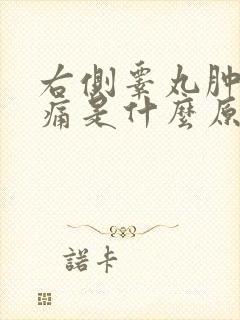 右側睾丸肿
痛是什麼原
諾卡